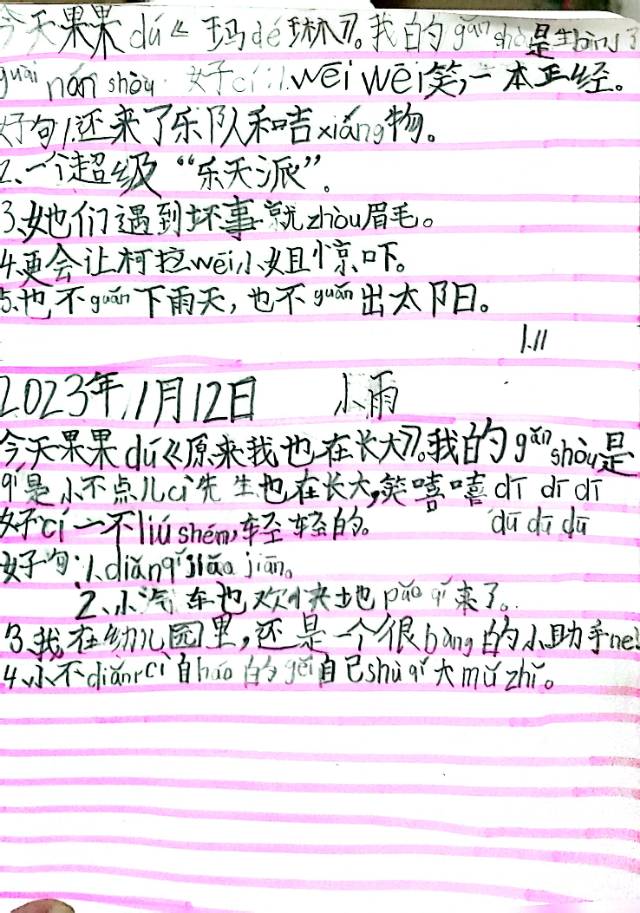 今天果果dú《玛dé琳》。我的gǎn shòu是生bìng了
guài nán shòu 好cí:1.wēi wēi笑,一本正经。
好句1.还来了乐队和吉xiáng物。
2、一个超级“乐天派”。
3、她们遇到坏事就zhòu眉毛。
4.更会让柯拉wéi小姐惊吓。
5.也不guǎn下雨天,也不guǎn出太阳。
1.11
2023年,1月12日 小雨
今天果果dú《原来我也在长大》。我的gǎn shòu是
qí是小不点儿cí先生也在长大,笑嘻嘻 dī dī dī
好cí一不liú shén,轻轻的。 dū dū dū
好句:1.diǎn qǐ jiǎo jiān。
2、小汽车也欢快地pǎo qǐ来了。
3.我在幼儿园里,还是一个很bàng的小助手ne!
4.小不diǎnr cí自háo的gěi自己shù qǐ大mǔ zhǐ。